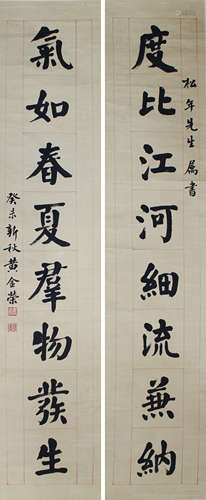 松年先生屬書
度比江河細流兼納
氣如春夏羣物發生
癸未新秋黃金榮